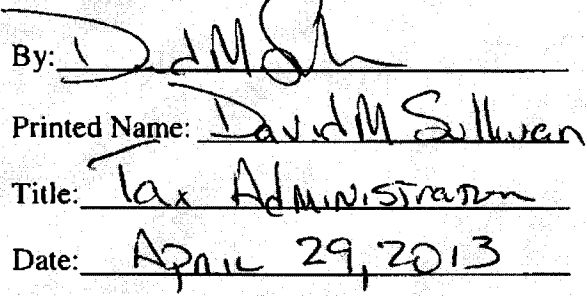 By: David M Sullivan
Printed Name: David M Sullivan
Title: Tax Administrator
Date: April 29, 2013